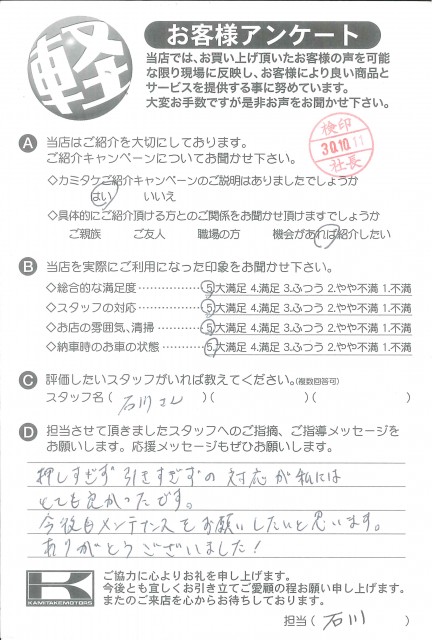 軽
お客様アンケート
当店では、お買い上げ頂いたお客様の声を可能
な限り現場に反映し、お客様により良い商品と
サービスを提供する事に努めています。
大変お手数ですが是非お声をお聞かせ下さい。
A 当店はご紹介を大切にしております。
ご紹介キャンペーンについてお聞かせ下さい。
検印
30.10.11
社長
◇カミタケご紹介キャンペーンのご説明はありましたでしょうか
はい いいえ
◇具体的にご紹介頂ける方とのご関係をお聞かせ頂けますでしょうか
ご親族 ご友人 職場の方 機会があれば紹介したい
B 当店を実際にご利用になった印象をお聞かせ下さい。
◇総合的な満足度……………5.大満足 4.満足 3.ふつう 2.やや不満 1.不満
◇スタッフの対応……………5.大満足 4.満足 3.ふつう 2.やや不満 1.不満
◇お店の雰囲気、清掃…………5.大満足 4.満足 3.ふつう 2.やや不満 1.不満
◇納車時のお車の状態…………5.大満足 4.満足 3.ふつう 2.やや不満 1.不満
C 評価したいスタッフがいれば教えてください。(複数回答可)
スタッフ名(石川さん)( )( )
D 担当させて頂きましたスタッフへのご指摘、ご指導メッセージを
お願いします。応援メッセージもぜひお願いします。
押しすぎず 引きすぎずの 対応が私には
とても良かったです。
今後もメンテナンスをお願いしたいと思います。
ありがとうございました!
K
KAMITAKE MOTORS
ご協力に心よりお礼を申し上げます。
今後とも宜しくお引き立てご愛顧の程お願い申し上げます。
またのご来店を心からお待ちしております。
担当(石川)